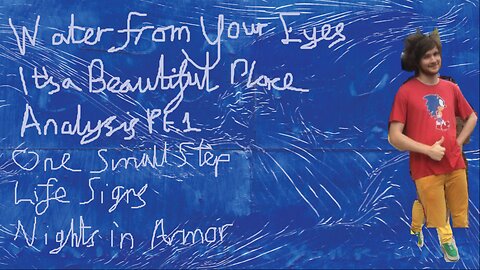 Water from Your Eyes
It's a Beautiful Place
Analysis Pt.1
One Small Step
Life Signs
Nights in Armor